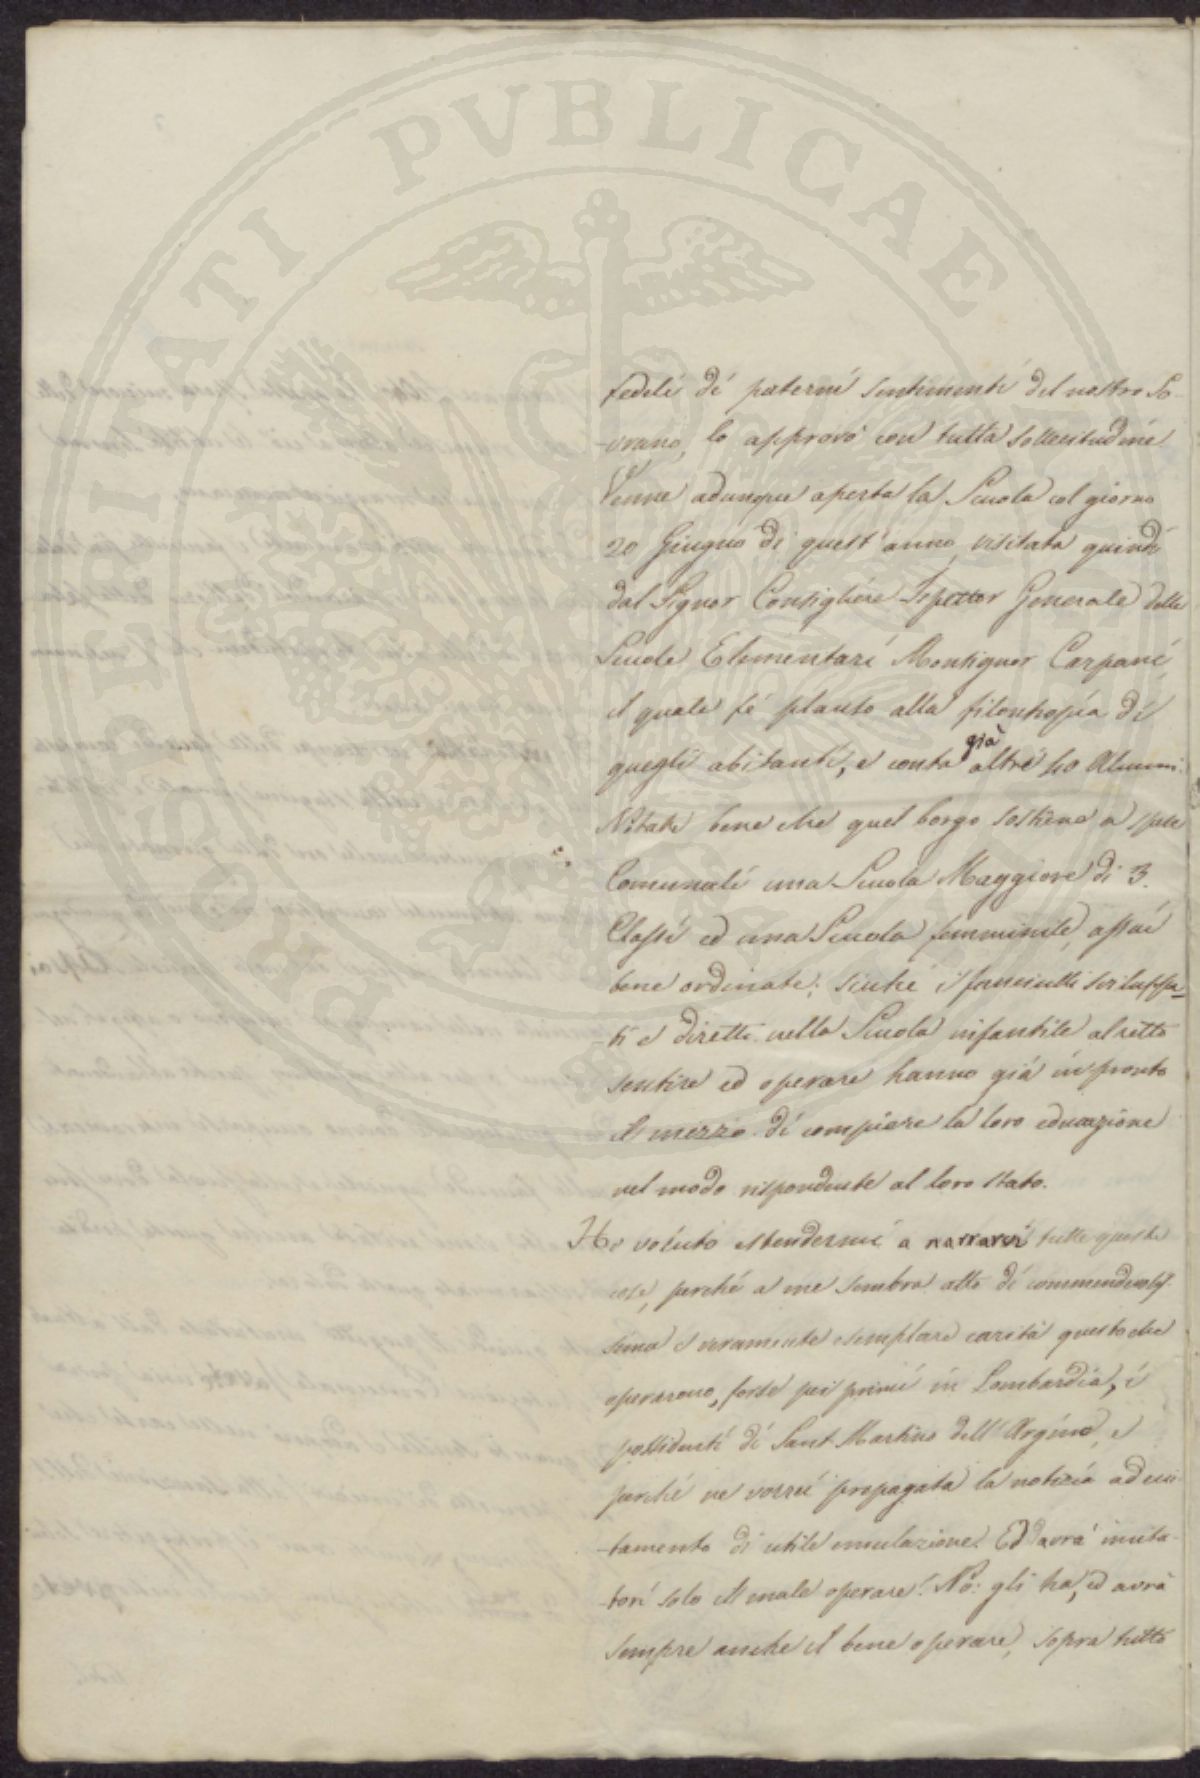 PROSPERITATI PVBLICAE
fedeli di paterni sentimenti del nostro So-
-vrano, lo approvò con tutta sollecitudine
Venne adunque aperta la Scuola col giorno
20 Giugno di quest'anno, visitata quindi
dal Signor Consigliere Ispettor Generale delle
Scuole Elementari Monsignor Carpani,
il quale fé plauso alla filantropia di
quegli abitanti, e conta già altri 40 Alunni.
Notate bene che quel borgo sostiene a spese
Comunali una Scuola Maggiore di 3.
Classi ed una Scuola femminile, assai
bene ordinate; sicché i fanciulli sviluppa-
-ti e diretti nella Scuola infantile al retto
sentire ed operare hanno già in pronto
il mezzo di compiere la loro educazione
nel modo rispondente al loro stato.
Ho voluto estendermi a narrarvi tutte queste
cose, perché a me sembra atto di commendevolis-
sima e veramente esemplare carità questo che
operarono, forse pei primi in Lombardia, i
possidenti di Sant Martino dell'Argine, e
perché ne vorrei propagata la notizia ad ecci-
-tamento di utile emulazione. Ed avrà imita-
-tori solo il male operare? No: gli ha, ed avrà
sempre anche il bene operare, sopra tutto